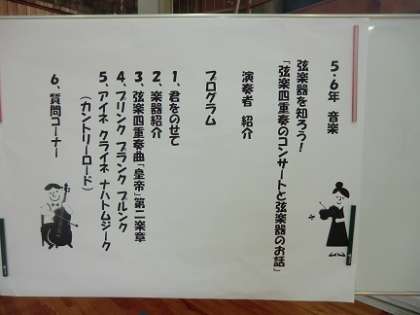 5・6年 音楽
弦楽器を知ろう!
「弦楽四重奏のコンサートと弦楽器のお話」
演奏者 紹介
プログラム
1、君をのせて
2、楽器紹介
3、弦楽四重奏曲「皇帝」第二楽章
4、プリンク プランク プルンク
5、アイネ クライネ ナハトムジーク
(カントリーロード)
6、質問コーナー